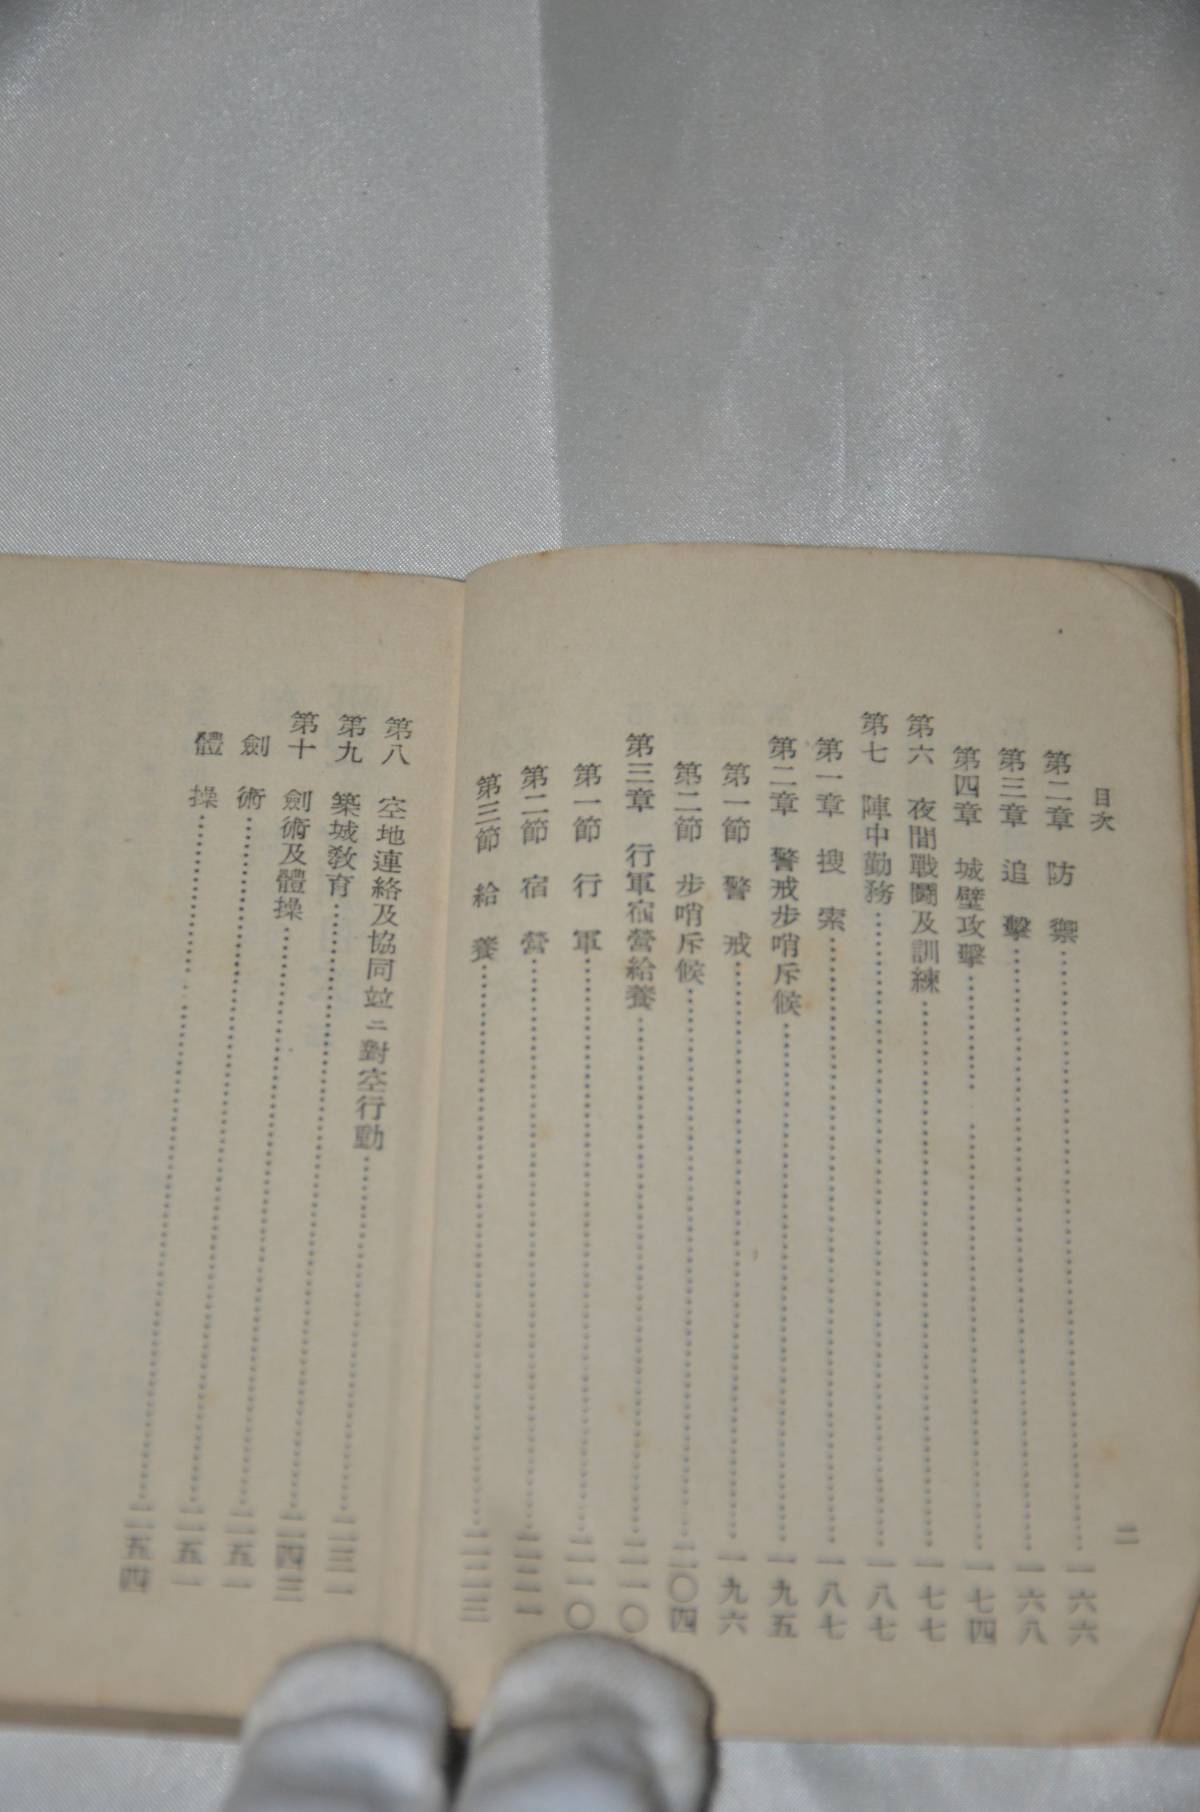 目次
二
第二章 防禦…………一六六
第三章 追擊…………一六八
第四章 城壁攻擊…………一七四
第六 夜間戰鬪及訓練…………一七七
第七 陣中勤務…………一八七
第一章 搜索…………一八七
第二章 警戒步哨斥候…………一九五
第一節 警戒…………一九六
第二節 步哨斥候…………二〇四
第三章 行軍宿營給養…………二一〇
第一節 行軍…………二一〇
第二節 宿營…………二二一
第三節 給養…………二二三
第八 空地連絡及協同竝ニ對空行動…………二三一
第九 築城敎育…………二四三
第十 劍術及體操…………二五一
劍術…………二五一
體操…………二五四